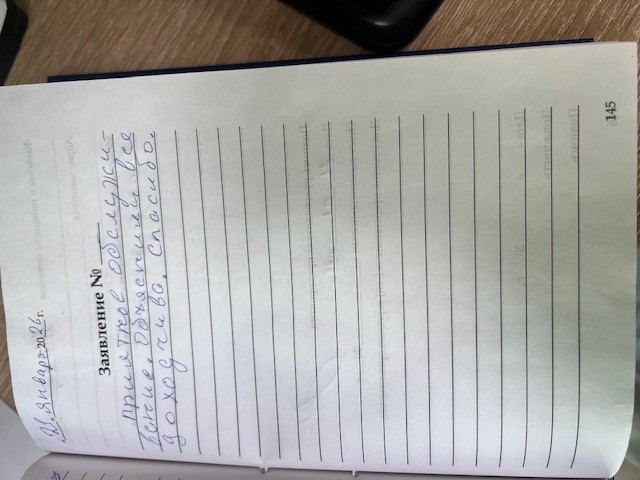 21 января 2026 г.
Заявление № —
Приятное обслужи-
вание. Объяснили все
доходчиво. Спасибо.
145